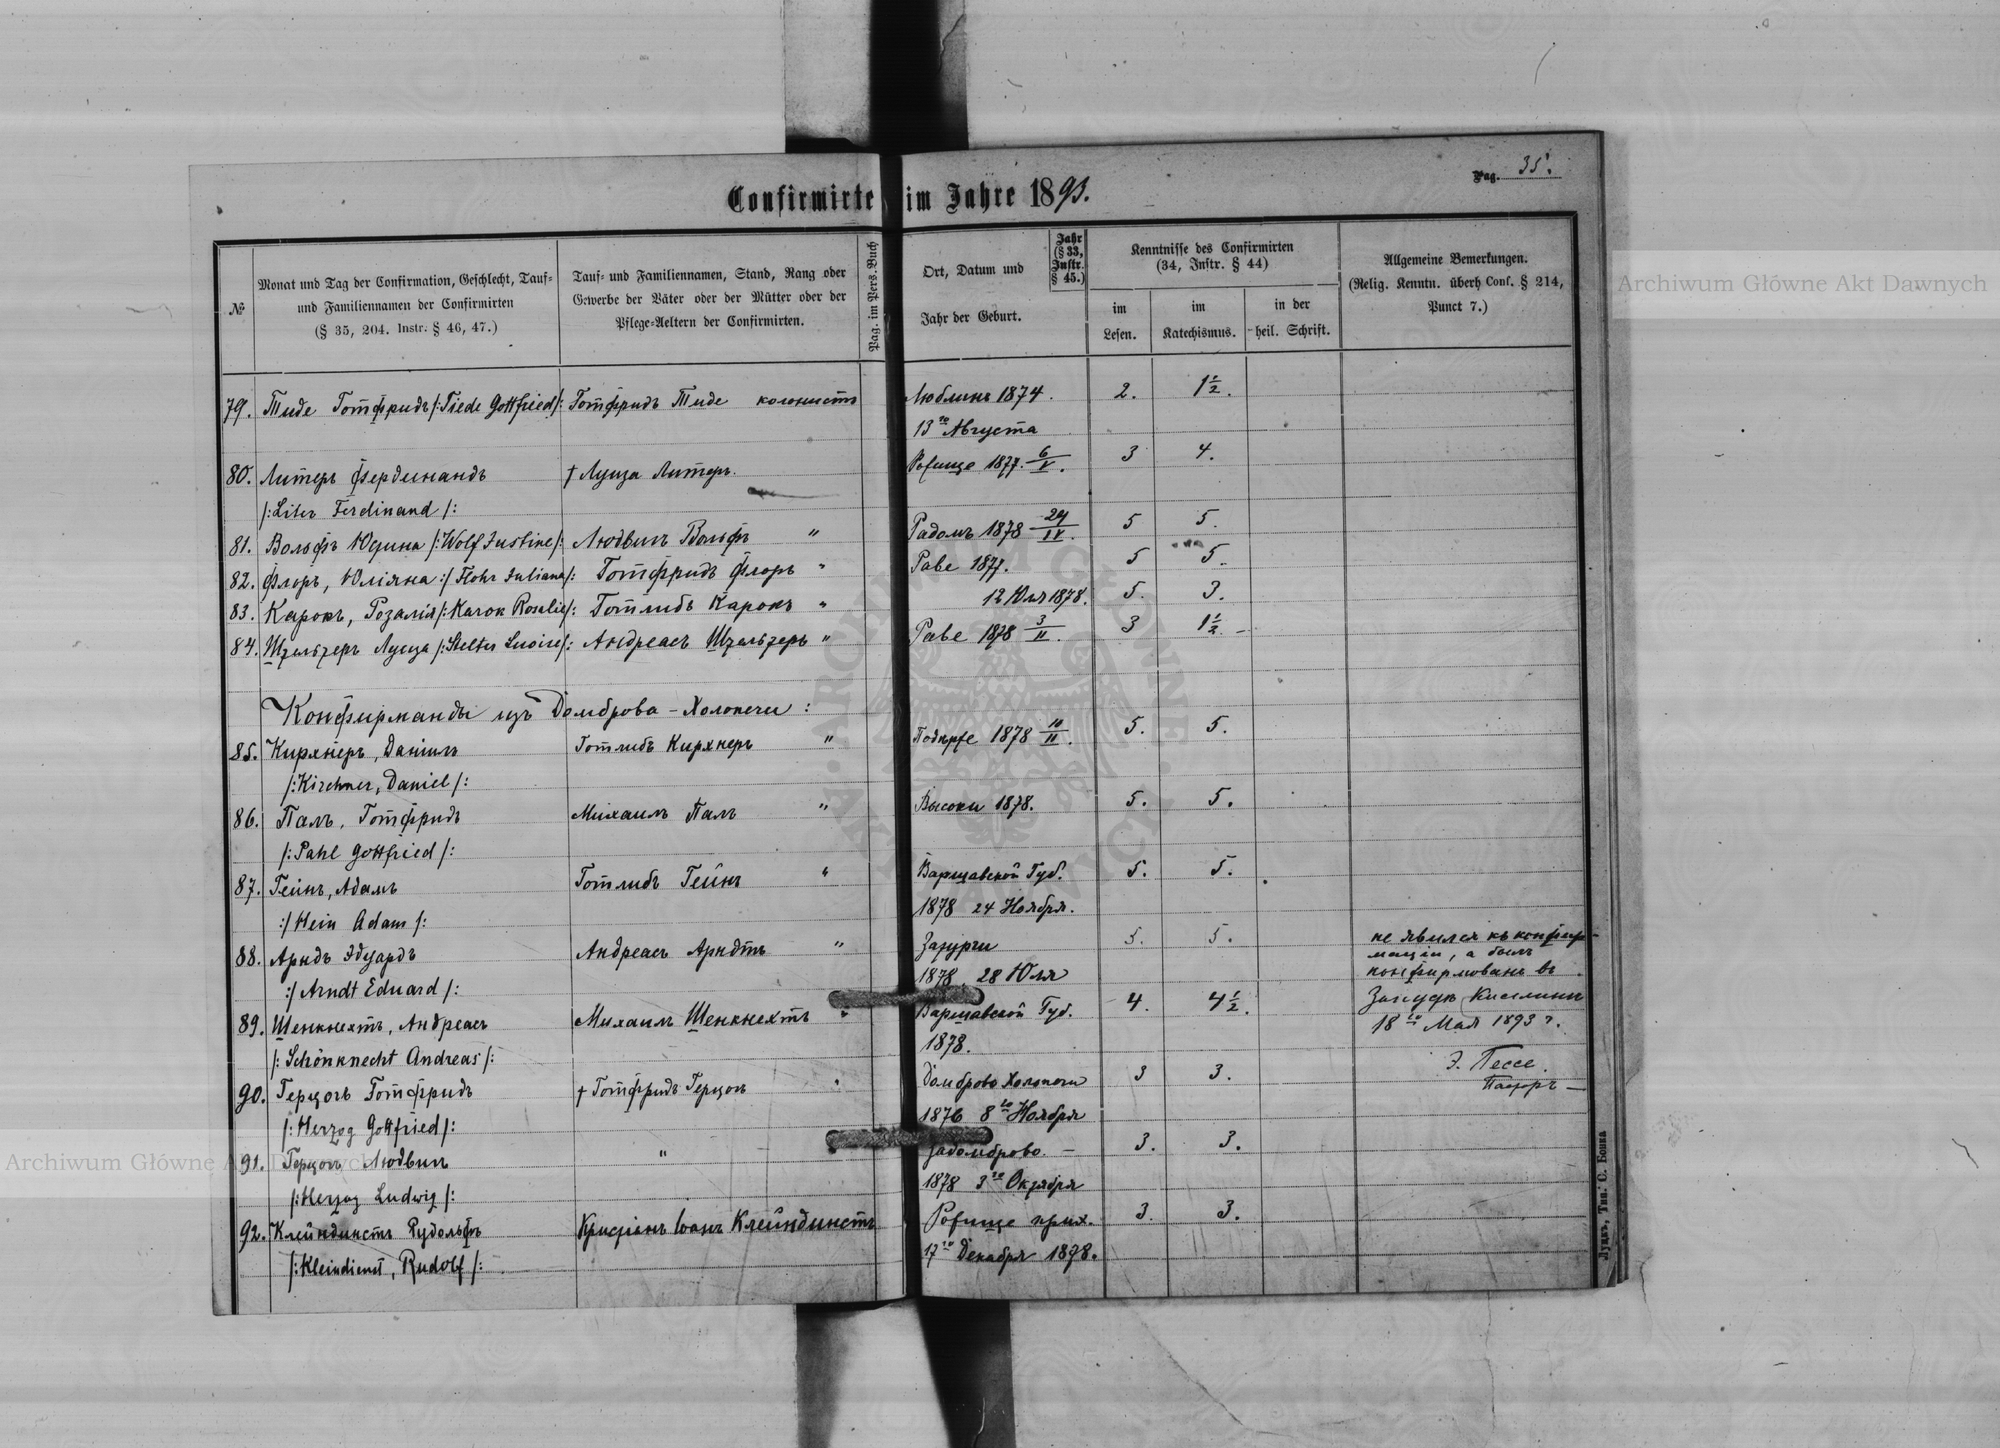 Pag. 35.
Confirmirte im Jahre 1893.
№
Monat und Tag der Confirmation, Geschlecht, Tauf-
und Familiennamen der Confirmirten
(§ 35, 204. Instr. § 46, 47.)
Tauf- und Familiennamen, Stand, Rang oder
Gewerbe der Väter oder der Mütter oder der
Pflege-Aeltern der Confirmirten.
Pag. im Pers. Buch
Ort, Datum und
Jahr der Geburt.
Jahr
(§ 33,
Instr.
§ 45.)
Kenntnisse des Confirmirten
(34, Instr. § 44)
im
Lesen.
im
Katechismus.
in der
heil. Schrift.
Allgemeine Bemerkungen.
(Relig. Kenntn. überh Conf. § 214,
Punct 7.)
79. Тиде Готфридъ /:Tiede Gottfried/: Готфридъ Тиде колонистъ Люблинъ 1874. 2. 1½.
13го Августа
80. Литеръ Фердинандъ † Луиза Литеръ. Рожище 1877. 6/V. 3 4.
/:Liter Ferdinand/:
81. Вольфъ Юстина /:Wolf Justine/: Людвигъ Вольфъ " Радомъ 1878 29/IV. 5 5.
82. Флоръ, Юліяна :/Flohr Juliana/: Готфридъ Флоръ " Раве 1877. 5 5.
83. Карокъ, Розалія /:Karok Rosalie/: Готлибъ Карокъ " 12 Юля 1878. 5. 3.
84. Штельтеръ Луиза /:Stelter Luoise/: Андреасъ Штельтеръ " Раве 1878 3/II. 3 1½. –
Конфирманды изъ Домброва-Холопечи:
85. Кирхнеръ, Даніилъ Готлибъ Кирхнеръ " 1878 10/II. 5. 5.
/:Kirchner, Daniel/:
86. Палъ, Готфридъ Михаилъ Палъ " Высоки 1878. 5. 5.
/:Pahl Gottfried/:
87. Гейнъ, Адамъ Готлибъ Гейнъ " Варшавской Губ. 5. 5.
:/Hein Adam/: 1878 24 Ноября.
88. Арндъ Эдуардъ Андреасъ Арндтъ " 5. 5.
:/Arndt Eduard/: 1878, 28 Юля
не явился къ конфир-
маціи, а былъ
конфирмованъ въ
89. Шенкнехтъ, Андреасъ Михаилъ Шенкнехтъ " Варшавской Губ. 4. 4½.
/:Schönknecht Andreas/: 1878.
18го Мая 1893 г.
Э. Пессе.
Пасторъ –
90. Герцогъ Готфридъ † Готфридъ Герцогъ " Домброво Холопечи 3 3.
/:Herzog Gottfried/: 1876 8го Ноября
91. Герцогъ Людвигъ " Задомброво. – 3. 3.
/:Herzog Ludwig/: 1878 3го Октября
92. Клейндинстъ Рудольфъ Кристіанъ Іоанъ Клейндинстъ Рожище прих. 3. 3.
/:Kleindienst, Rudolf/: 17го Декабря 1878.
Луцкъ, Тип. С. Бонка
Archiwum Główne Akt Dawnych
Archiwum Główne Akt Dawnych